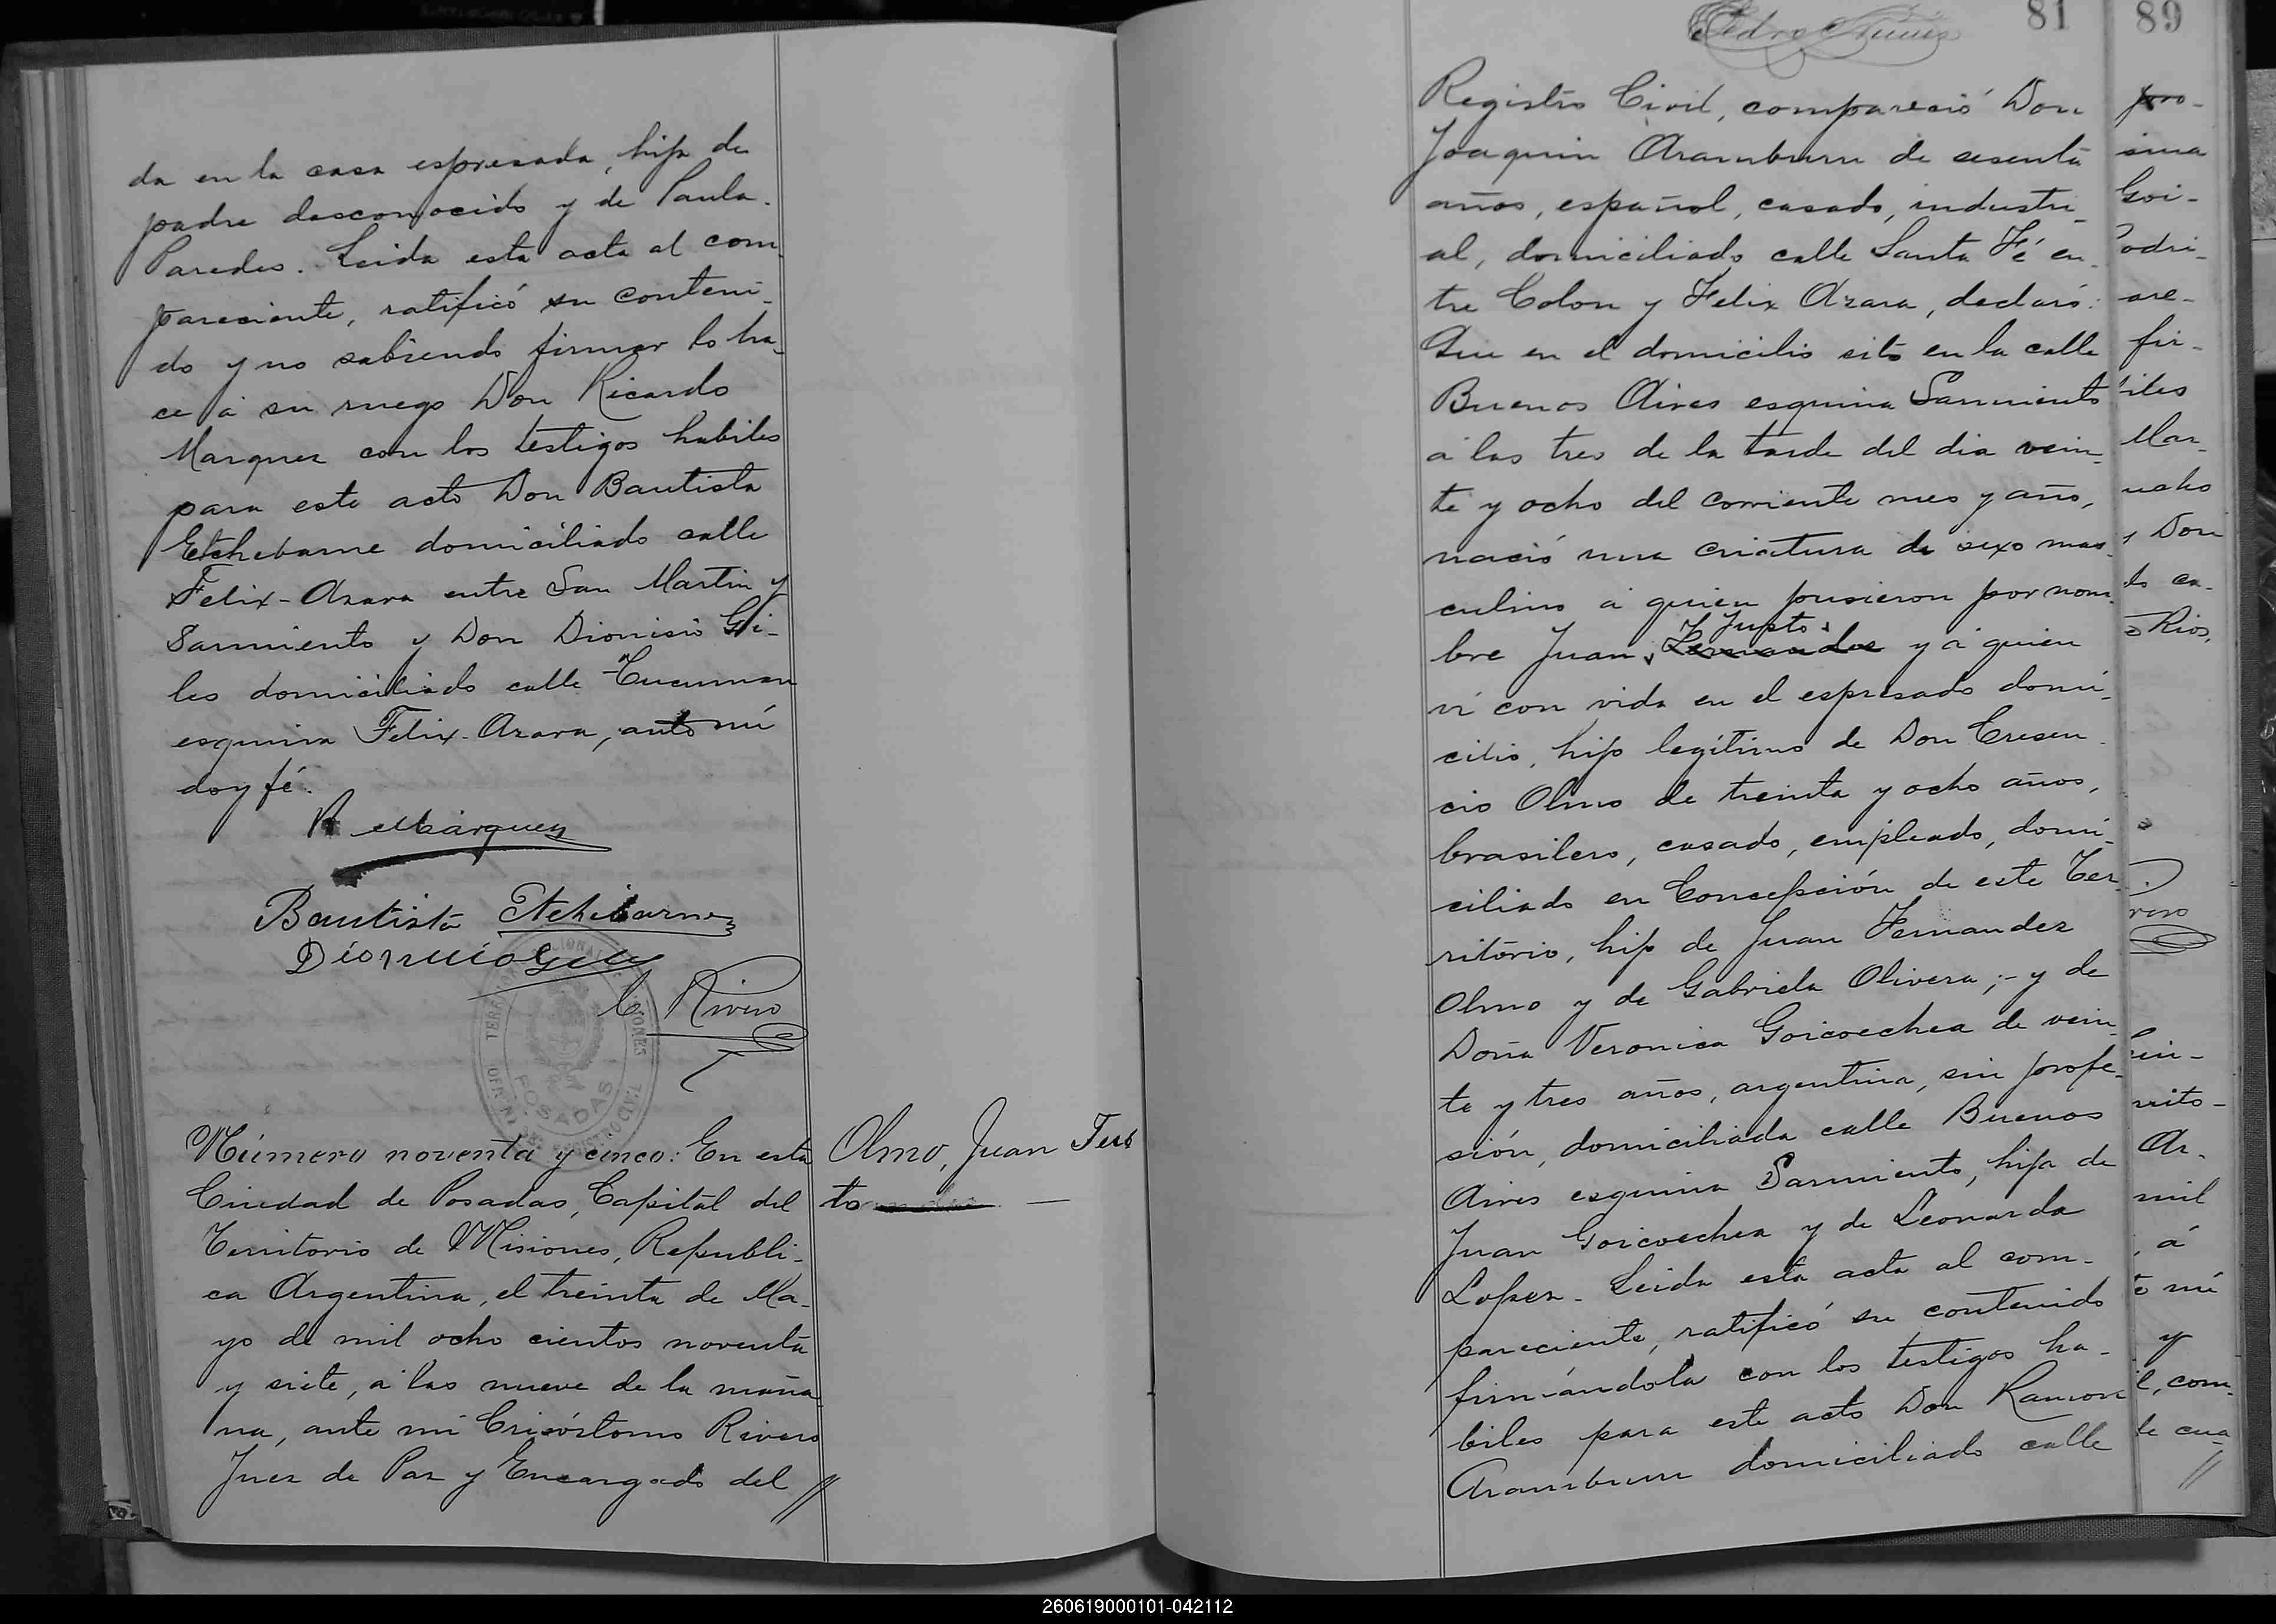 da en la casa espresada, hija de
padre desconocido y de Paula
Paredes. Leida esta acta al com-
pareciente, ratificó su conteni-
do y no sabiendo firmar lo ha-
ce á su ruego Don Ricardo
Marquez con los testigos habiles
para este acto Don Bautista
Etchebarne domiciliado calle
Felix-Azara entre San Martin y
Sarmiento y Don Dionisio Gi-
les domiciliado calle Tucuman
esquina Felix-Azara, ante mí
doy fé.
R Márquez
Bautista Etchebarne
Dionicio
C Rivero
POSADAS
Número noventa y cinco: En esta
Ciudad de Posadas, Capital del
Territorio de Misiones, Republi-
ca Argentina, el treinta de Ma-
yo de mil ocho cientos noventa
y siete, á las nueve de la maña-
na, ante mi Crisóstomo Rivero
Juez de Paz y Encargado del //
Olmo, Juan Jus
to
81
Registro Civil, compareció Don
Joaquin Aramburu de sesenta
años, español, casado, industri-
al, domiciliado calle Santa Fé en-
tre Colon y Felix Azara, declaró:
Que en el domicilio sito en la calle
Buenos Aires esquina Sarmiento
á las tres de la tarde del dia vein-
te y ocho del corriente mes y año,
nació una criatura de sexo mas-
culino á quien pusieron por nom-
Justo
bre Juan Fernandez y á quien
ví con vida en el espresado domi-
cilio, hijo legítimo de Don Cresen-
cio Olmo de treinta y ocho años,
brasilero, casado, empleado, domi-
ciliado en Concepción de este Ter-
ritorio, hijo de Juan Fernandez
Olmo y de Gabriela Olivera;- y de
Doña Veronica Goicoechea de vein-
te y tres años, argentina, sin profe-
sión, domiciliada calle Buenos
Aires esquina Sarmiento, hija de
Juan Goicoechea y de Leonarda
Lopez. Leida esta acta al com-
pareciente, ratificó su contenido
firmándola con los testigos ha-
biles para este acto Don Ramon
Aramburu domiciliado calle
89
sima
Goi-
odri-
are-
fir-
iles
Mar-
ucho
y Don
to ca-
Rios,
rito-
Ar-
mil
, á
mí
y
l, com-
le cua-
//
260619000101-042112